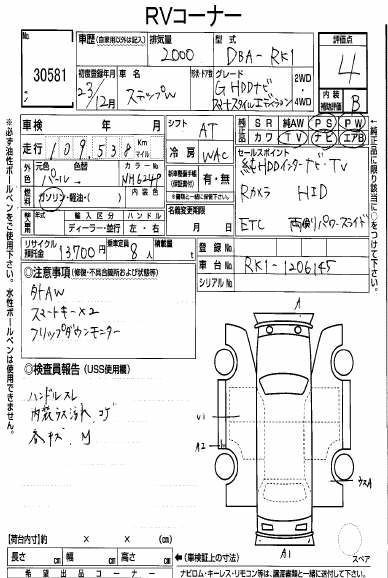 RVコーナー
No.
30581
車歴 (自家用以外は記入)
排気量
2000
型式
DBA-RK1
評価点
4
内装
補助評価
B
初度登録年月
23/12月
車名
ステップW
形状・ドア数
グレード
G HDDナビ
スマートスタイルエディション
2WD
4WD
車検
年 月
走行
109,538
Km
マイル
シフト
AT
冷房
WAC
純正品
SR 純AW PS PW
カワ TV ナビ エアB
セールスポイント
純HDDインターナビ TV
Rカメラ HID
ETC 両側パワースライド
外色
元色
色替
カラーNo
パール
NH624P
燃料
ガソリン・軽油・( )
内装色
新車整備手帳
(保証書付)
有・無
輸入車
年式
輸入区分
ハンドル
ディーラー・並行
左・右
名義変更期限
月 日
リサイクル
預託金
13700円
乗車定員
8人
積載量
t
登録No
車台No
RK1-1206145
シリアルNo
◎注意事項 (修復・不具合個所および状態等)
社外AW
スマートキー×2
フリップダウンモニター
◎検査員報告 (USS使用欄)
ハンドルスレ
内装ウス汚れ、コゲ
各キズ、M
A
U1
A2
ウスA
A1
スペア
【荷台内寸】 × × (cm)
長さ cm 幅 cm 高さ cm
◀(車検証上の寸法)
希望出品コーナー
ナビロム・キーレス・リモコン等は、譲渡書類と一緒に送付して下さい。
※必ず油性ボールペンをご使用下さい。水性ボールペンは使用できません。
◀純正品に限り該当に○をつけて下さい。